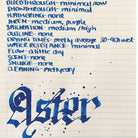 BLEEDTHROUGH: MINIMAL/LOW
SHOWTHROUGH: MINIMAL
FEATHERING: NONE
SHEEN: MEDIUM, PURPLE
SATURATION: MEDIUM/HIGH
OUTLINE: NONE
DRYING TIMES: PRETTY AVERAGE 30-40 WET
WATER RESISTANCE: MINIMAL
FLOW: A LITTLE DRY
SCENT: NONE
SMUDGE: NONE
CLEANING: PRETTY EASY
Aster